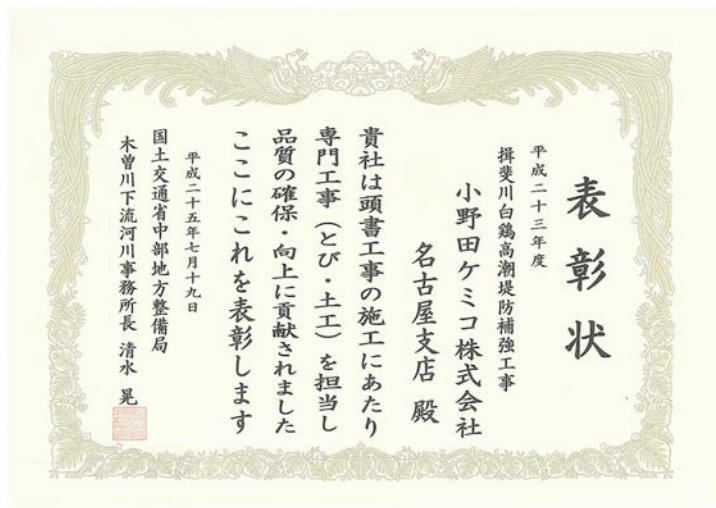 表彰状
平成二十三年度
揖斐川白鶏高潮堤防補強工事
小野田ケミコ株式会社
名古屋支店 殿
貴社は頭書工事の施工にあたり
専門工事（とび・土工）を担当し
品質の確保・向上に貢献されました
ここにこれを表彰します
平成二十五年七月十九日
国土交通省中部地方整備局
木曽川下流河川事務所長 清水 晃